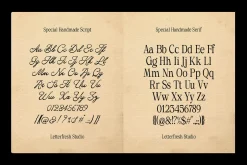 Special Handmade Script
Aa Bb Cc Dd Ee Ff
Gg Hh Ii Jj Kk Ll
Mm Nn Oo Pp Qq
Rr Ss Tt Uu Vv
Ww Xx Yy Zz
0123456789
Letterfresh Studio
Special Handmade Serif
Aa Bb Cc Dd Ee Ff
Gg Hh Ii Jj Kk Ll
Mm Nn Oo Pp Qq
Rr Ss Tt Uu Vv
Ww Xx Yy Zz
0123456789
Letterfresh Studio